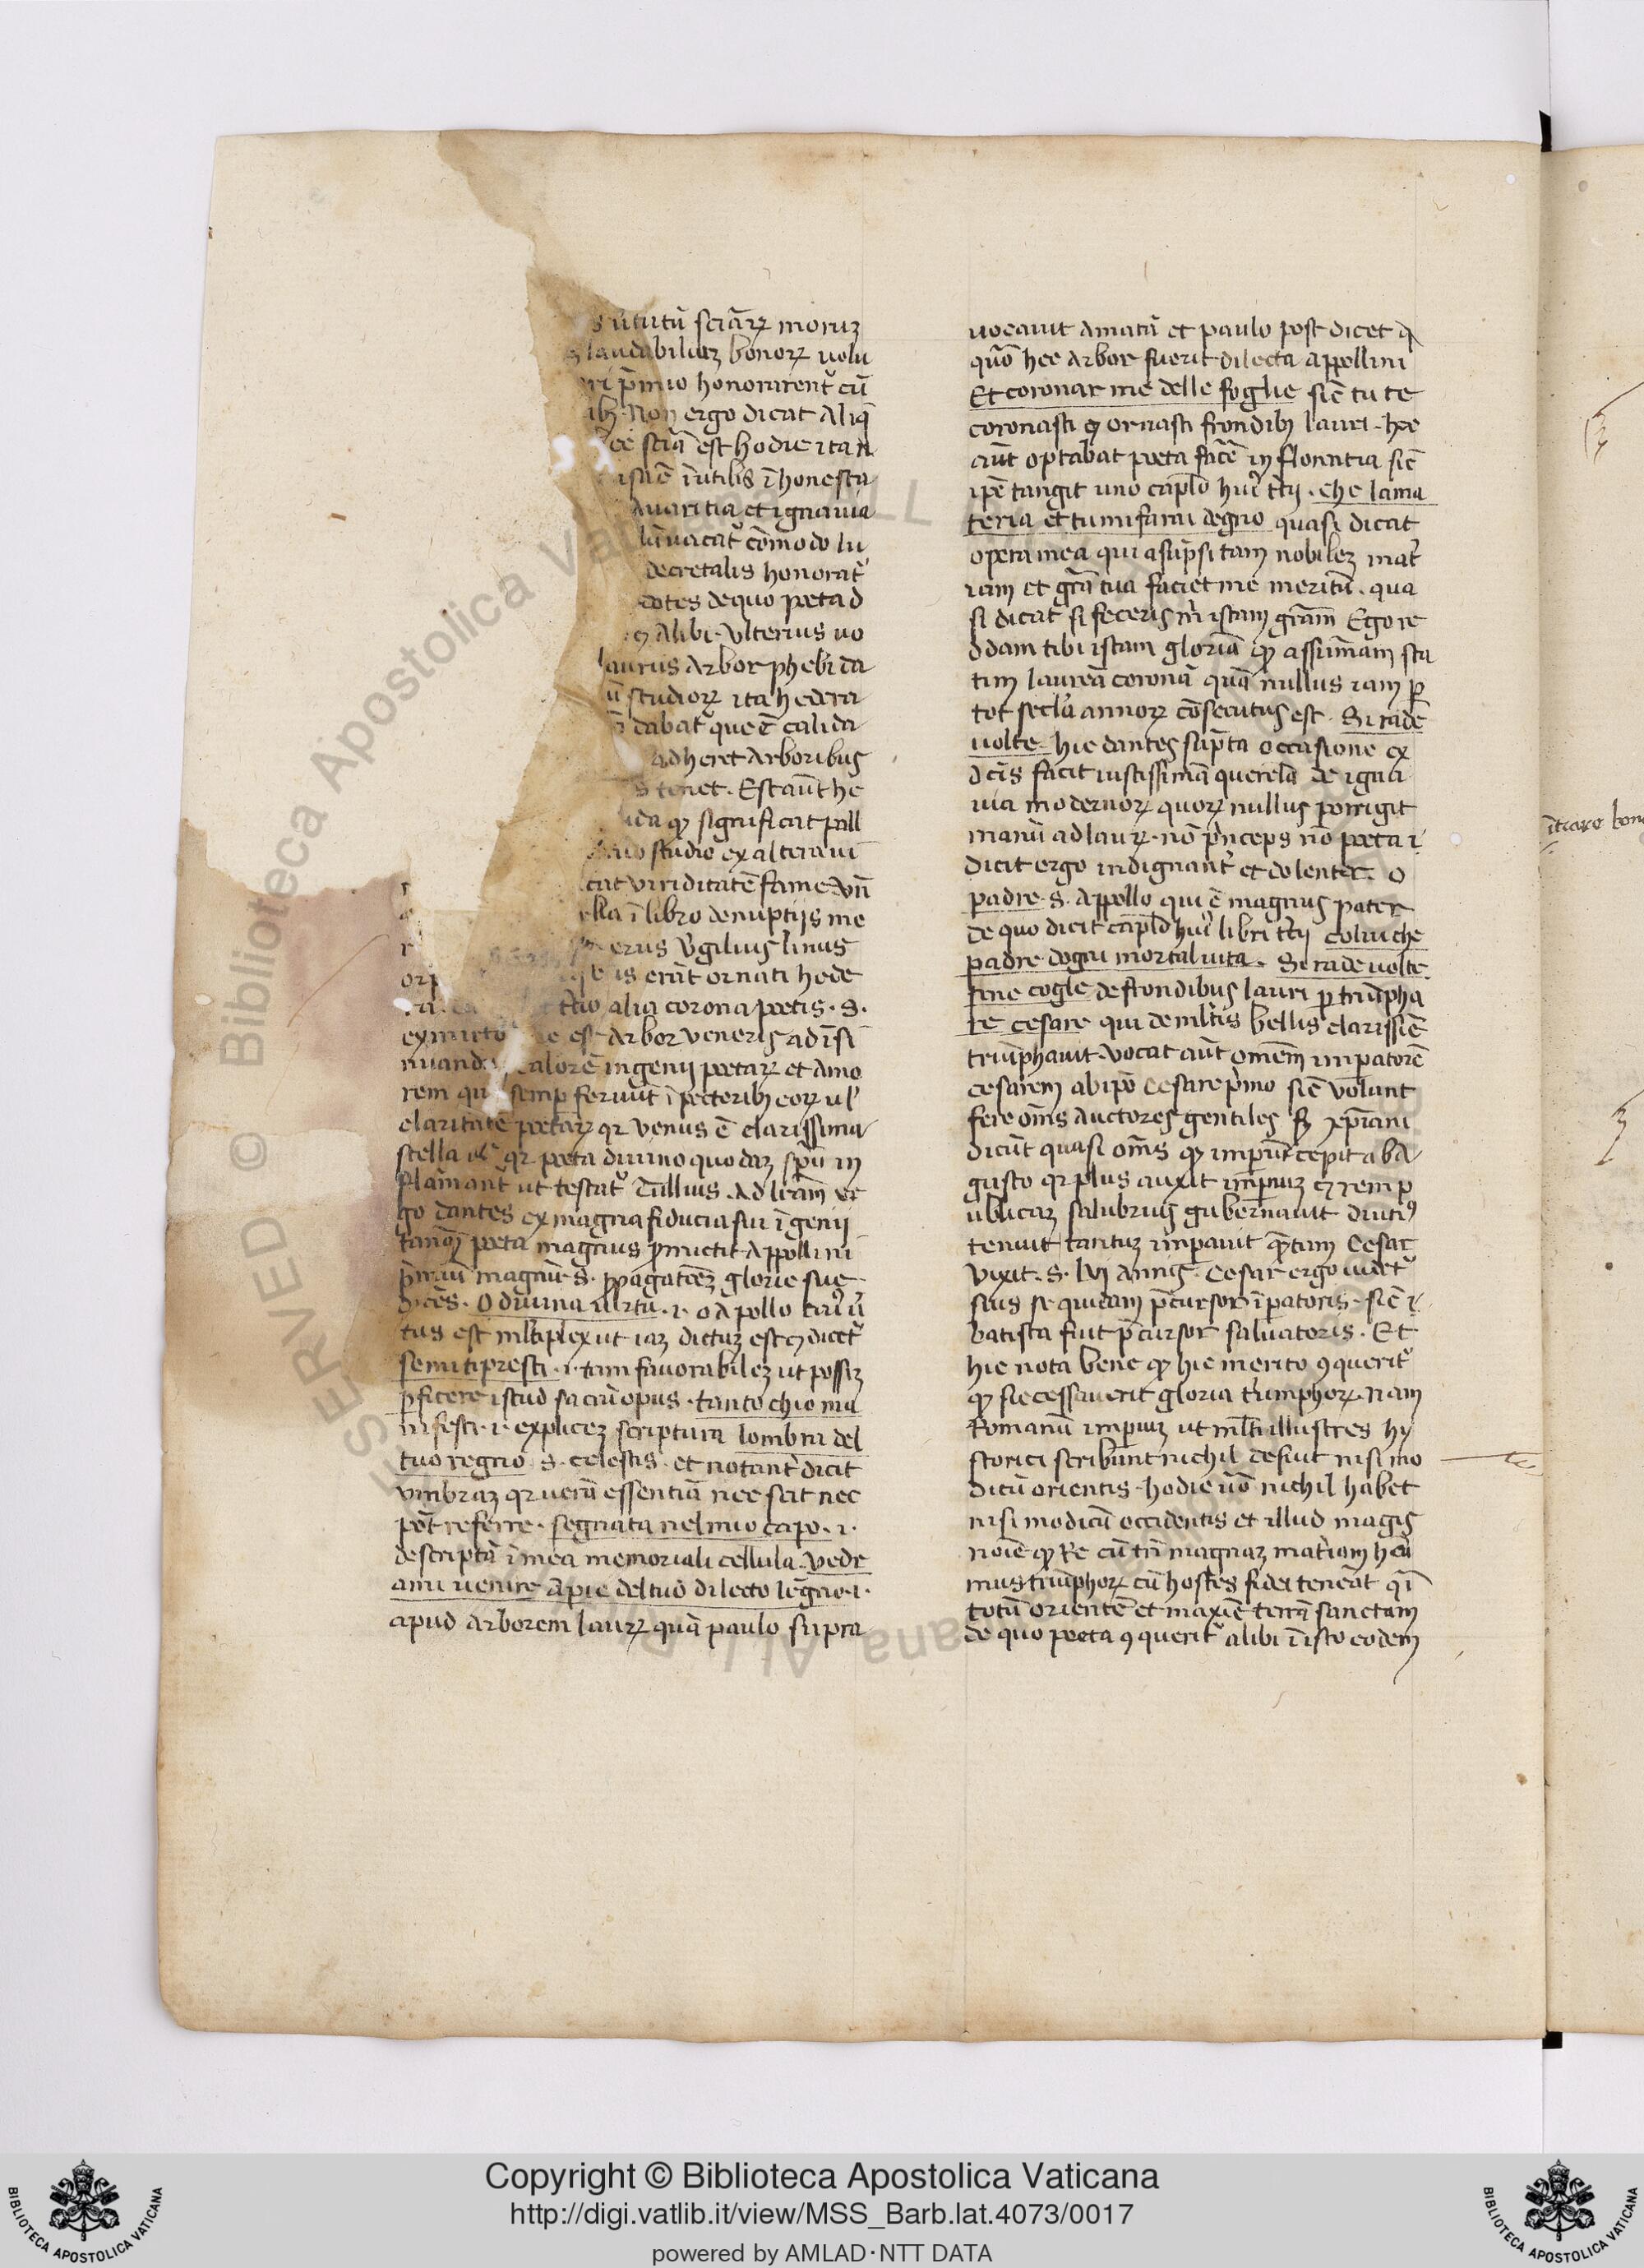 s ũtutũ sciãꝝ moruꝫ
laudabiliuꝫ bonoꝝ uolu
p̃mio honorirent̃ cũ
ibꝫ. Non ergo dicat aliq̃
ec sciã est hodie ita
ĩutilis ĩhonesta
avaritia et ignavia
vacat̃ cõmodo lu
decretalis honorat̃
dotes de quo poeta d
ꝯ alibi. Vlterius no
laurus arbor phebi da
ũ studioꝝ ita hedera
dabat̃ que ẽ calida
adheret arboribus
s tenet. Est aũt he
ida ꝙ significat pall
studio ex altera uĩ
cat viriditatẽ fame Vñ
ella ĩ libro de nuptijs me
erus Vgilius linus
is erãt ornati hede
t̃tio alia corona poetis. S.
ex mirto est arbor veneris ad ĩsi
nuand calorẽ ingenij poetaꝝ et amo
rem qui semp feruũt ĩ pectoribꝫ eoꝝ ul̃
claritatẽ poetaꝝ qꝛ venus ẽ clarissima
stella ul̃ qꝛ poeta diuino quodaꝫ spũ in
flãmant̃ ut testat̃ Tullius. Ad lrãm er
go dantes ex magna fiducia sui ĩgenij
tanqꝫ poeta magnus ꝓmictit Appollini
p̃miũ magnũ. S. ꝓpagatõeꝫ glorie sue
dicẽs. O diuina uirtu. i. o Apollo cui9 ũ
tus est ml̃tiplex ut iaꝫ dictuꝫ est ꝯ dicet̃
se mi ti presti. i. tam fauorabileꝫ ut possiꝫ
ꝑficere istud sacrũ opus. tanto chio ma
nifesti. i. expliceꝫ scriptura lombra del
tuo regno. S. celestis. et notant̃ dicit
vmbraꝫ qꝛ uerã essentiã nec scit nec
pot̃ referre. segnata nel mio capo. i.
descriptã ĩ mea memoriali cellula. vede
ami uenire a pie del tuo dilecto legno. i.
apud arborem lauꝝ quã paulo supra
uocauit amatã et paulo post dicet q̃
quõ hec arbor fuerit dilecta appellini
Et coronar me delle foglie sic̃ tu te
coronasti ꝯ ornasti frondibꝫ lauri. hec
aũt optabat poeta fac̃e in florentia sic̃
ipẽ tangit uno cap̃lo hui9 t̃tij. che la ma
teria et tu mi farai degno quasi dicat
opera mea qui asup̃si tam nobileꝫ mat̃
riam et grã tua faciet me meritũ. qua
si dicat si feceris m̃ istam grãm Ego re
ddam tibi istam gloriã ꝙ assumam sta
tim laureã coronã quã nullus iam ꝑ
tot secl̃a annoꝝ cõsecutus est. Si rade
uolte. hic dantes sup̃ta occasione ex
dc̃is facit iustissimã querelã de igna
uia modernoꝝ quoꝝ nullus porrigit
manũ ad lauꝝ. nõ p̃nceps nõ poeta i.
dicit ergo indignant̃ et dolenter. O
padre. S. Appollo qui ẽ magnus pater
de quo dicit cap̃lo hui9 libri t̃tij colui che
padre dogni mortal uita. Si rade uolte
sene cogle de frondibus lauri ꝑ triũpha
re cesare qui de ml̃tis bellis clarissiẽ
triũphauit. Vocat aũt omẽm imperatorẽ
cesarem ab ipõ Cesare p̃mo sic̃ uolunt
fere om̃s auctores gentiles sꝫ xp̃iani
dicũt quasi om̃s ꝙ impiũ cepit ab a
gusto qꝛ plus auxit impiuꝫ ꝯ rem p
ublicaꝫ salubrius gubernauit diuti9
tenuit tantuꝫ imperauit q̃tum Cesar
vixit. S. lvj annis. Cesar ergo uidet̃
fuis se quidam p̃cursor ĩperatoris. sic̃ i.
batista fuit p̃cursor saluatoris. Et
hic nota bene ꝙ hic merito ꝯquerit̃
ꝙ sic cessauerit gloria triumphoꝝ. nam
Romanũ impiuꝫ ut ml̃ti illustres hy
storici scribunt nichil defuit nisi mo
dicũ orientis. hodie uõ nichil habet
nisi modicũ occidentis et illud magis
noĩe ꝙ Re cũ tñ magnaꝫ mat̃iam hẽa
mus triũphoꝝ cũ hostes fidei teneãt qĩ
totũ orientẽ et maxiẽ terrã sanctam
de quo poeta ꝯquerit̃ alibi ĩ isto eodem
Copyright © Biblioteca Apostolica Vaticana
http://digi.vatlib.it/view/MSS_Barb.lat.4073/0017
powered by AMLAD·NTT DATA
BIBLIOTECA APOSTOLICA VATICANA
BIBLIOTECA APOSTOLICA VATICANA